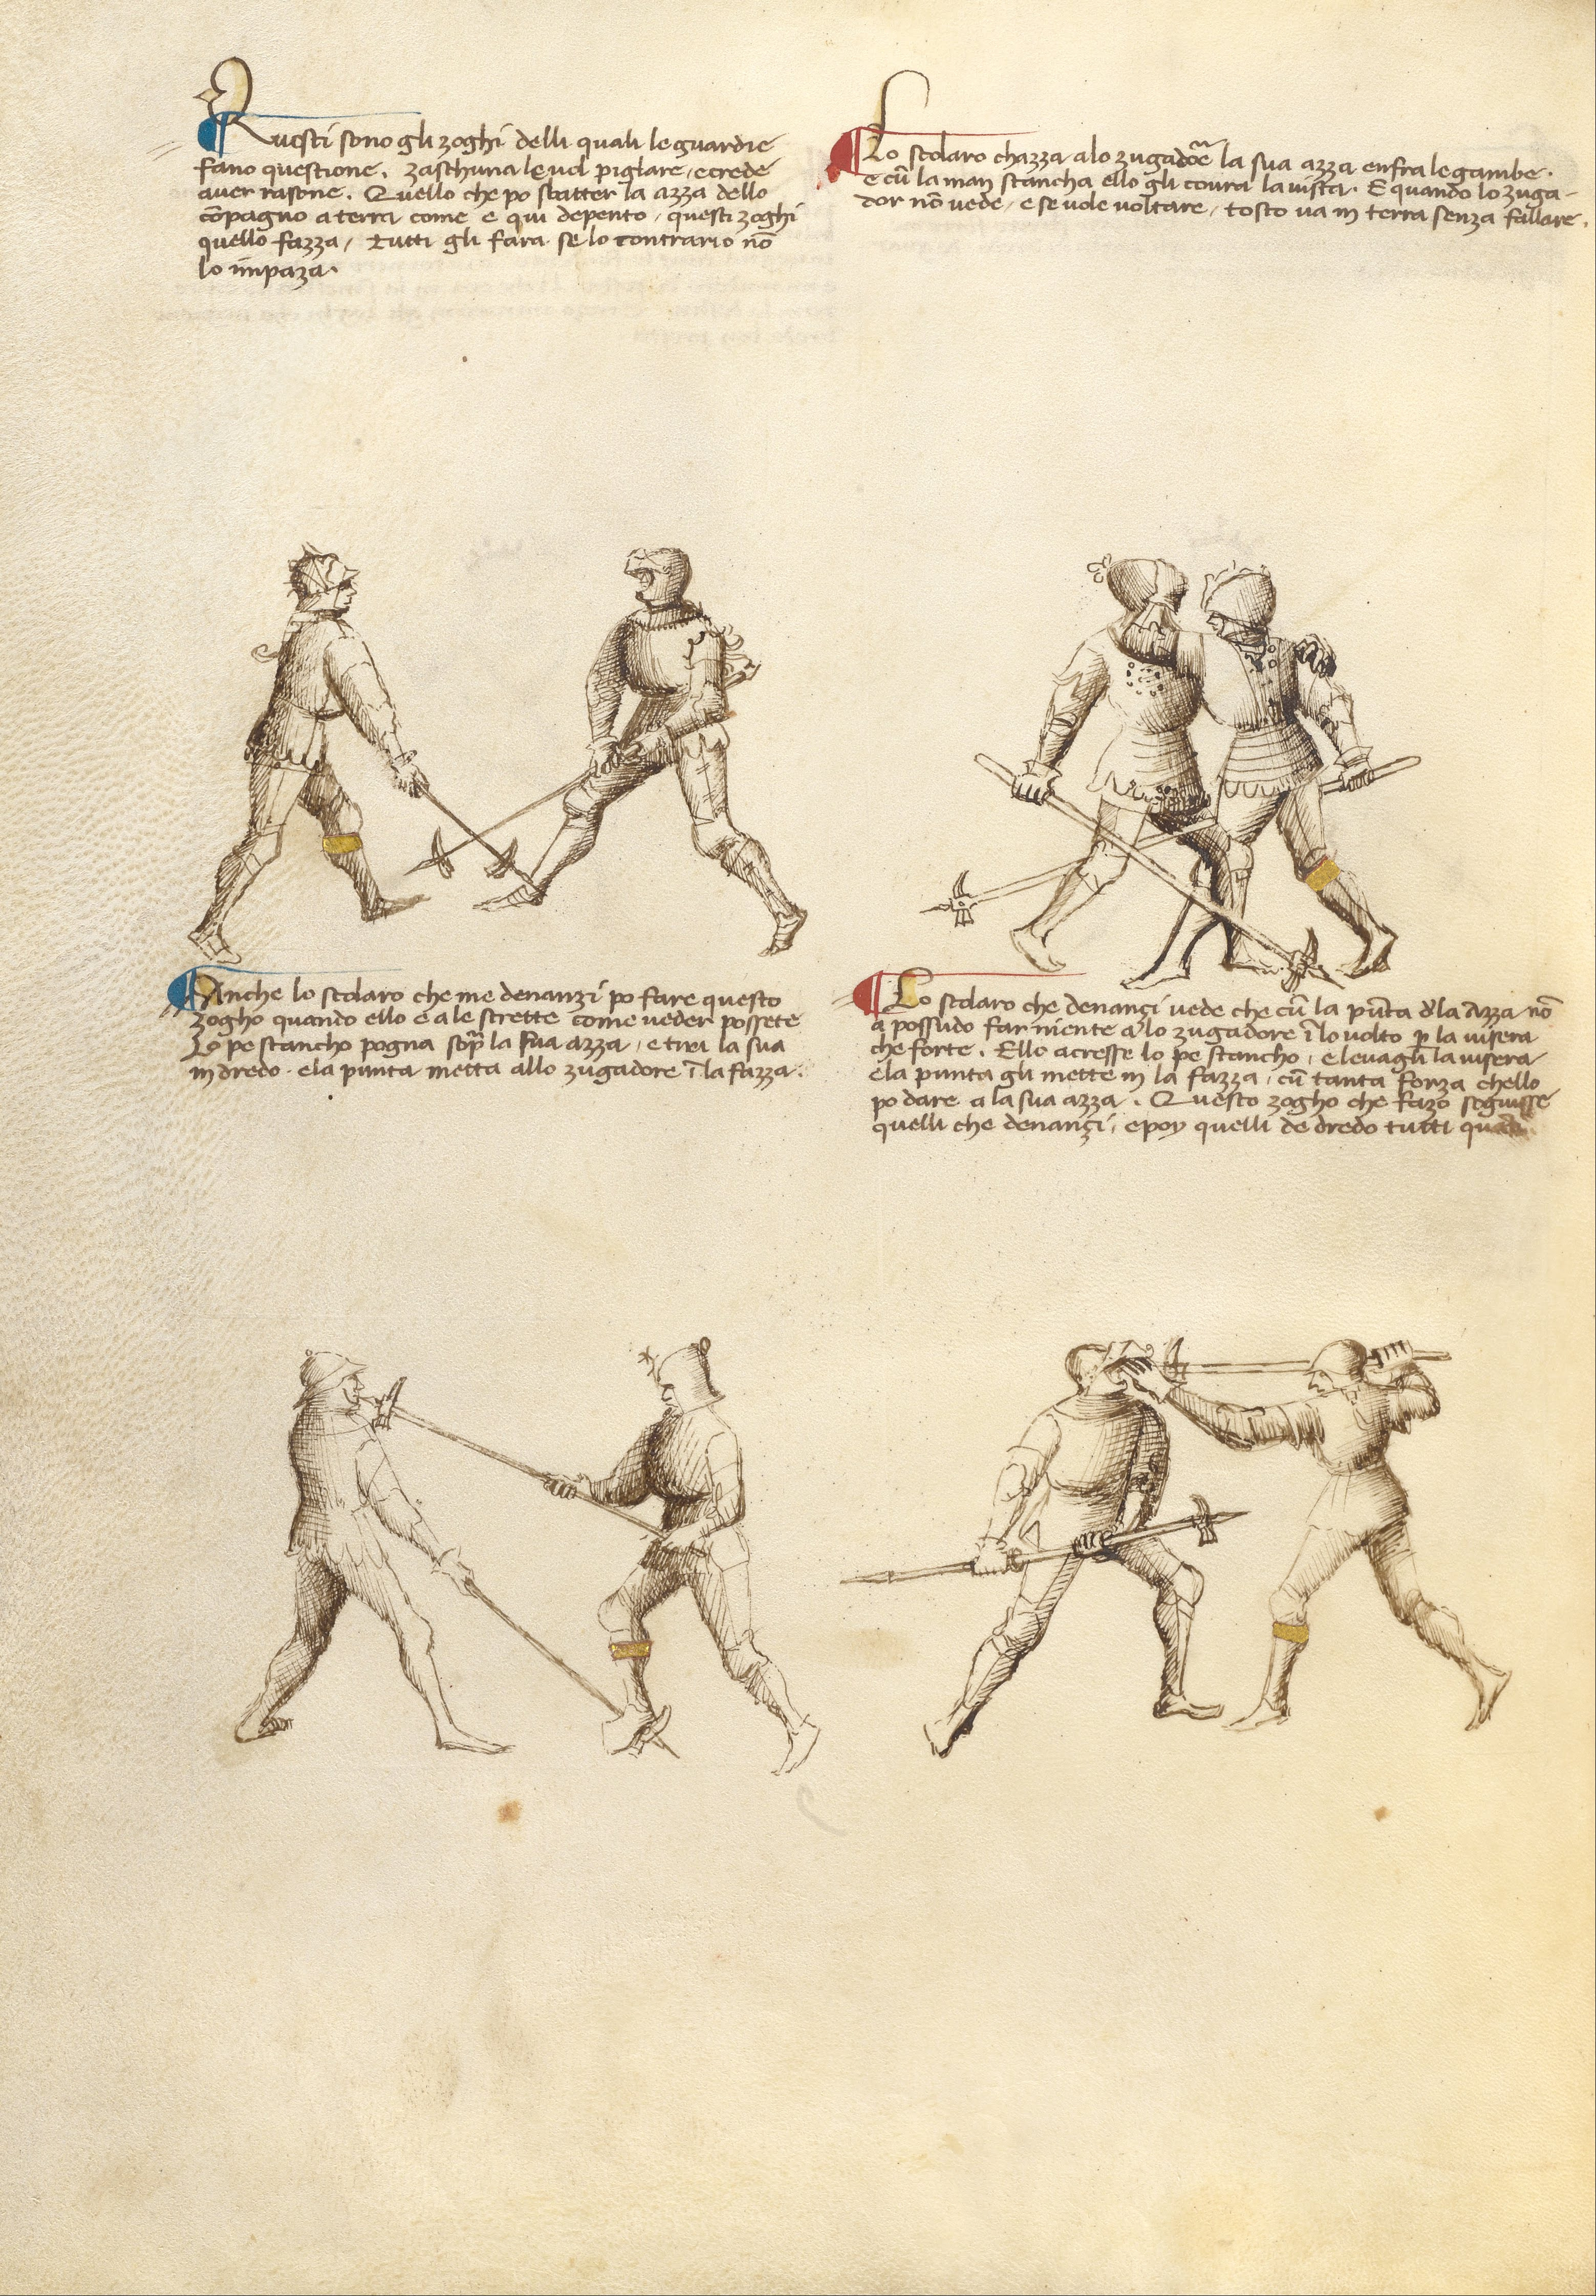 Questi sono gli zoghi delli quali le guardie
fano questione. zaschuna le vol pigliare, e crede
aver rasone. Quello che po sbatter la azza dello
cōpagno a terra come e qui depento, questi zoghi
quello fazza, tutti gli fara se lo contrario nō
lo impaza.
Lo scolaro chazza a lo zugadore la sua azza enfra le gambe.
e cū la man stancha ello gli covra la vista. E quando lo zuga-
dor nō vede, e se vole voltare, tosto va in terra senza fallare.
Anche lo scolaro che me denanzi po fare questo
zogho quando ello e a le strette come veder possete
Lo pe stancho pogna sopra la sua azza, e tiri la sua
in dredo. e la punta metta allo zugadore ī la fazza.
Lo scolaro che denançi vede che cū la pūta d'la Azza nō
a possudo far niente a lo zugadore ī lo volto p la visera
che forte. Ello acresse lo pe stancho, e levagli la visera
e la punta gli mette in la fazza, cū tanta forza chello
po dare a la sua azza. Questo zogho che fazo seguisse
quelli che denançi, e poy quelli de dredo tutti